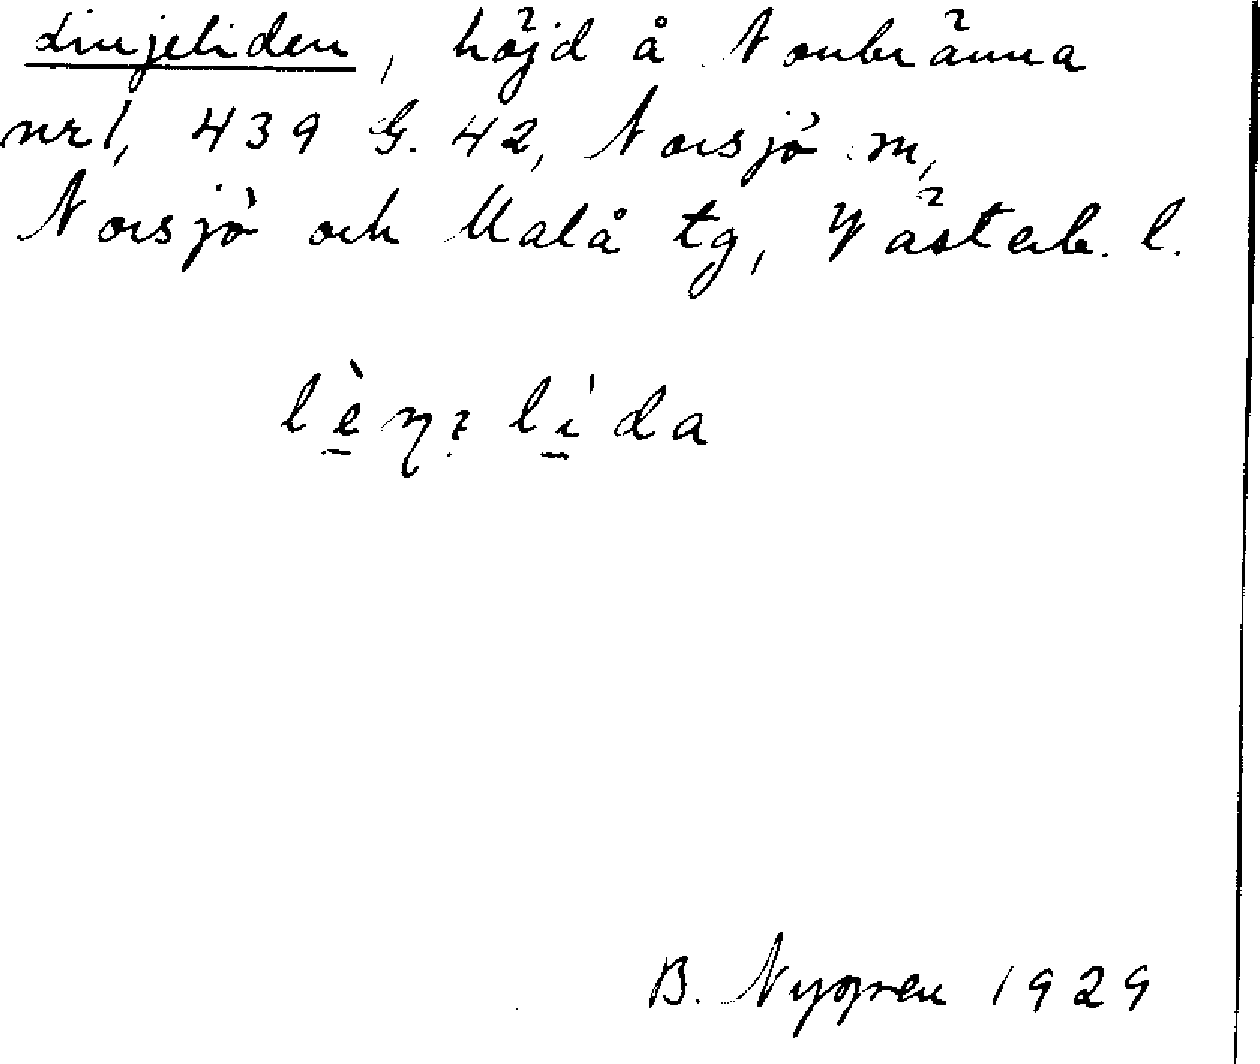 Linjeliden, höjd å Nonbränna
nr 1, 439 G. 42, Norsjö sn,
Norsjö och Malå tg, Västerb. l.
lida
B. Nygren 1929